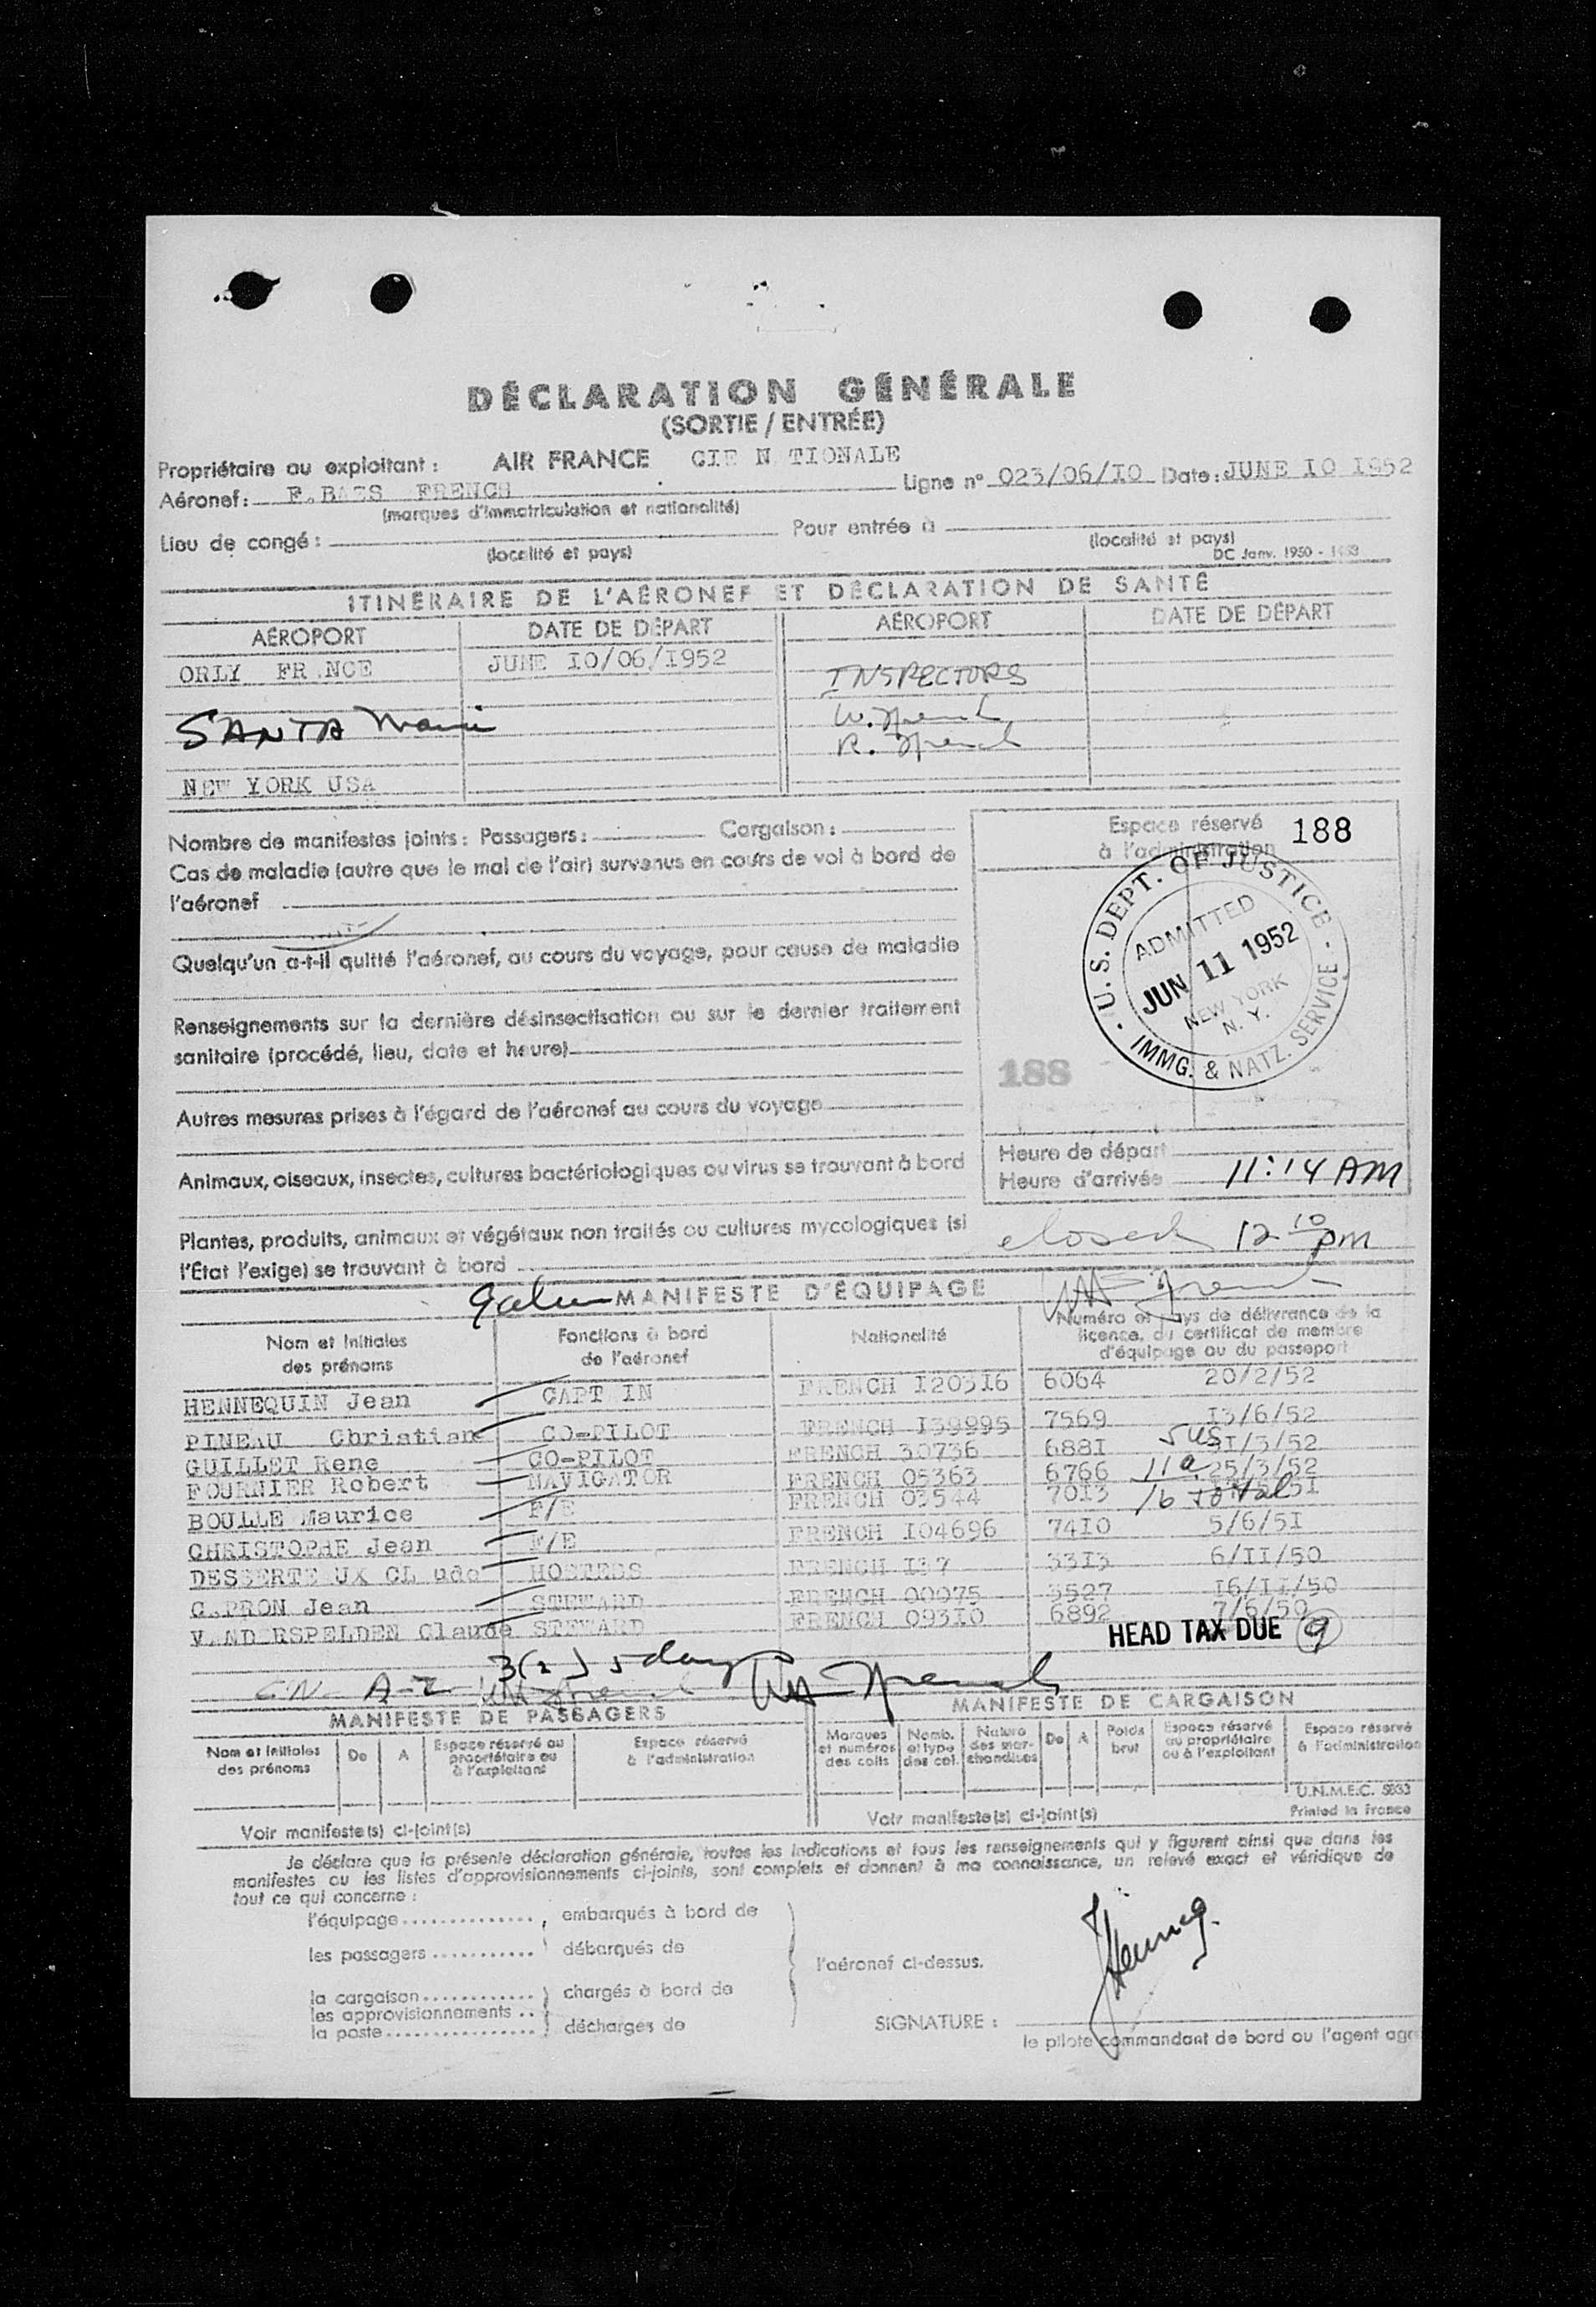 DÉCLARATION GÉNÉRALE
(SORTIE / ENTRÉE)
Propriétaire ou exploitant : AIR FRANCE CIE N TIONALE
Aéronef: F.BAZS FRENCH Ligne n° 023/06/IO Date: JUNE IO I952
(marques d'immatriculation et nationalité)
Lieu de congé : Pour entrée à
(localité et pays) (localité et pays)
DC Janv. 1950 -
ITINÉRAIRE DE L'AÉRONEF ET DÉCLARATION DE SANTÉ
AÉROPORT DATE DE DÉPART AÉROPORT DATE DE DÉPART
ORLY FR NCE JUNE IO/06/I952 INSPECTORS
SANTA Maria W. French
R. French
NEW YORK USA
Nombre de manifestes joints : Passagers : Cargaison :
Cas de maladie (autre que le mal de l'air) survenus en cours de vol à bord de
l'aéronef
Quelqu'un a-t-il quitté l'aéronef, au cours du voyage, pour cause de maladie
Renseignements sur la dernière désinsectisation ou sur le dernier traitement
sanitaire (procédé, lieu, date et heure)
Autres mesures prises à l'égard de l'aéronef au cours du voyage
Animaux, oiseaux, insectes, cultures bactériologiques ou virus se trouvant à bord
Plantes, produits, animaux et végétaux non traités ou cultures mycologiques (si
l'État l'exige) se trouvant à bord
Espace réservé 188
à l'administration
U.S. DEPT. OF JUSTICE
ADMITTED
JUN 11 1952
NEW YORK
N. Y.
IMMG. & NATZ. SERVICE
188
Heure de départ
Heure d'arrivée 11:14 AM
closed 12 10 pm
MANIFESTE D'ÉQUIPAGE
Nom et Initiales des prénoms
Fonctions à bord de l'aéronef
Nationalité
Numéro et pays de délivrance de la
licence, du certificat de membre
d'équipage ou du passeport
HENNEQUIN Jean CAPT IN FRENCH I203I6 6064 20/2/52
PINEAU Christian CO-PILOT FRENCH I39995 7569 I3/6/52
GUILLET Rene CO-PILOT FRENCH 30736 688I 5 US 3I/3/52
FOURNIER Robert NAVIGATOR FRENCH 05363 6766 11 a 25/3/52
BOULLE Maurice F/E FRENCH 03544 70I3 16 total 5I
CHRISTOPHE Jean F/E FRENCH I04696 74I0 5/6/5I
DESSERTE UX CL ude HOSTESS FRENCH I3 7 33I3 6/II/50
C.PRON Jean STEWARD FRENCH 00075 3527 I6/II/50
V.ND RSPELDEN Claude STEWARD FRENCH 093I0 6892 7/6/50
HEAD TAX DUE 9
3(2) 5 days
MANIFESTE DE PASSAGERS MANIFESTE DE CARGAISON
Nom et Initiales des prénoms
De A
Espace réservé au propriétaire ou à l'exploitant
Espace réservé à l'administration
Marques et numéros des colis
Nomb. et type des col.
Nature des marchandises
De A
Poids brut
Espace réservé au propriétaire ou à l'exploitant
Espace réservé à l'administration
U.N.M.E.C. 5833
Voir manifeste(s) ci-joint(s) Voir manifeste(s) ci-joint(s) Printed in France
Je déclare que la présente déclaration générale, toutes les indications et tous les renseignements qui y figurent ainsi que dans les
manifestes ou les listes d'approvisionnements ci-joints, sont complets et donnent à ma connaissance, un relevé exact et véridique de
tout ce qui concerne :
l'équipage .............. , embarqués à bord de
les passagers ........... débarqués de
l'aéronef ci-dessus.
la cargaison ............ chargés à bord de
les approvisionnements ..
la poste ................ déchargés de
SIGNATURE :
le pilote commandant de bord ou l'agent agr